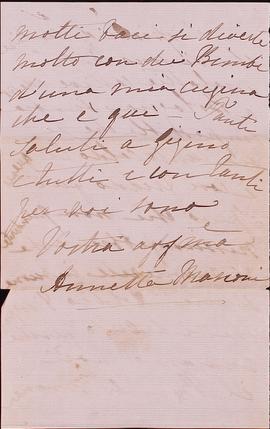 molti baci si diverte
molto con dei Bimbi
d'una mia cugina
che è qui – Tanti
saluti a Gigino
e tutti e con tanti
per voi sono
Vostra affma
Annetta